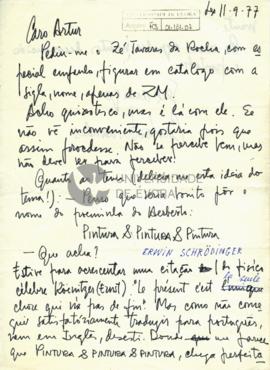 Lx 11-9-77
Caro Artur
Pediu-me o Zé Tavares da Rocha, com es
pecial empenho, figurar em catálogo com a
sigla, nome, apenas de ZM
Acho quixotesco, mas é lá com ele. Eu
não vê inconveniente, gostaria pois que
assim procedesse. Não se percebe bem, mas
não deve ser para perceber!
Quanto ao tema, delicia-me esta ideia do
tema!) - Penso que seria bonito pôr o
nome do preâmbulo de Alberto:
PINTURA & PINTURA & PINTURA
Que acha?
ERWIN SCHRÖDINGER
Estive para acrescentar uma citação do físico
célebre "le présent c'est la seule
chose qui n'a pas de fin" Mas como não conse
gui satisfatòriamente traduzir para português,
nem em Inglês, desisti. me parece
que PINTURA & PINTURA & PINTURA, chega perfeita
UNIVERSIDADE
DE ÉVORA